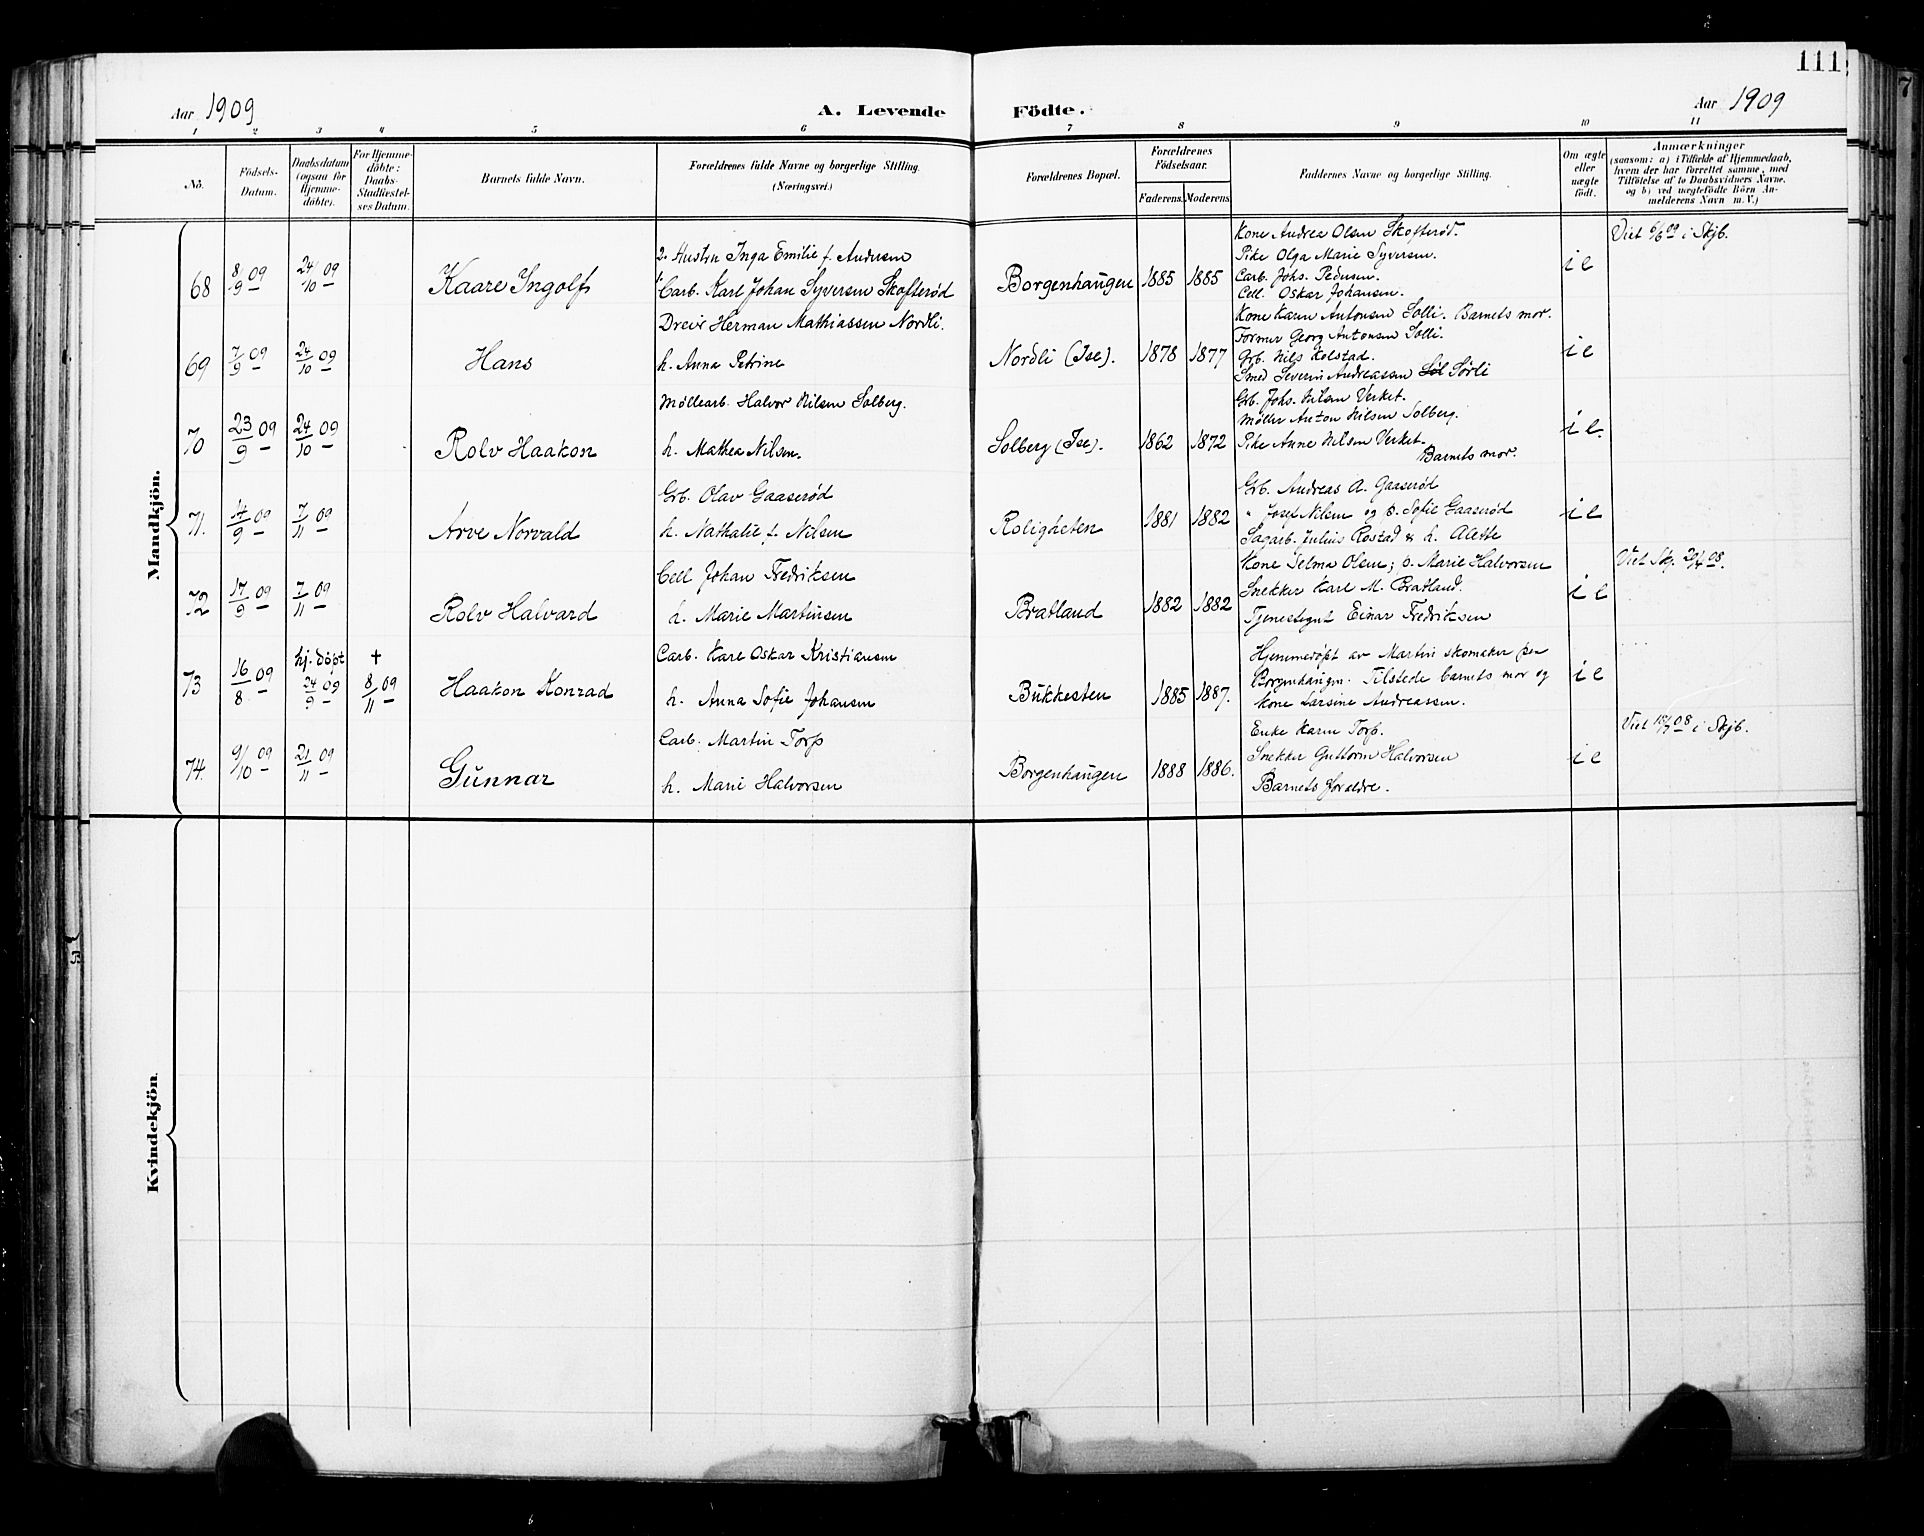 111
Aar 1909
A. Levende Födte.
Aar 1909
1 2 3 4 5 6 7 8 9 10 11
No.
Födsels-Datum.
Daabsdatum (ogsaa for Hjemme-döbte).
For Hjemme-döbte: Daabs-Stadfæstel-ses Datum.
Barnets fulde Navn.
Forældrenes fulde Navne og borgerlige Stilling.
(Næringsvei.)
Forældrenes Bopæl.
Forældrenes Födselsaar.
Faderens. Moderens.
Faddernes Navne og borgerlige Stilling.
Om ægte eller uægte födt.
Anmærkninger
(saasom: a) i Tilfælde af Hjemmedaab,
hvem der har forrettet samme, med
Tilföielse af to Daabsvidners Navne,
og b) ved uægtefödte Börn An-
melderens Navn m. V.)
Mandkjön.
68 8/9 09 24/10 09 Kaare Ingolf
2. Hustru Inga Emilie f. Andersen
1. Carb. Karl Johan Syversen Skofterød
Borgenhaugen 1885 1885
Kone Andrea Olsen Skofterød.
Pike Olga Marie Syversen.
Carb. Johs. Pedersen.
Cell. Oskar Johansen.
ie
Viet 6/6 09 i Skjb.
69 7/9 09 24/10 09 Hans
Dreier Herman Mathiassen Nordli.
h. Anna Petrine
Nordli (Ise). 1878 1877
Kone Karen Antonsen Solli. Barnets mor.
Former Georg Antonsen Solli.
Grb. Nils Kolstad.
Smed Severin Andreassen Sørli
ie
70 23/9 09 24/10 09 Rolv Haakon
Møllearb. Halvor Nilsen Solberg.
h. Mathea Nilsen.
Solberg (Ise). 1862 1872
Grb. Johs. Nilsen Verket.
Møller Anton Nilsen Solberg.
Pike Anne Nilsen Verket.
Barnets mor.
ie.
71. 14/9 09 7/11 09 Arve Norvald
Grb. Olav Gaaserød
h. Nathalie f. Nilsen
Roligheten 1881 1882
Grb. Andreas A. Gaaserød
" Josef Nilsen og p. Sofie Gaaserød
Sagarb. Julius Rostad & h. Alette
ie
72 17/9 09 7/11 09 Rolv Halvard
Cell Johan Fredriksen
h. Marie Martinsen
Bratland 1882 1882
Kone Selma Olsen; p. Marie Halvorsen
Snekker Karl M. Bratland.
Tjenestegut Einar Fredriksen
ie
Viet Skj. 20/4 08.
73 16/8 09 hj. døpt 24/9 09 + 8/11 09 Haakon Konrad
Carb. Karl Oskar Kristiansen
h. Anna Sofie Johansen
Bukkesten 1885 1887.
Hjemmedøpt av Martin skomaker på
Borgenhaugen. Tilstede barnets mor og
kone Larsine Andreassen.
ie
74. 9/10 09 21/11 09 Gunnar
Carb. Martin Torp
h. Marie Halvorsen
Borgenhaugen 1888 1886.
Enke Karen Torp.
Snekker Guttorm Halvorsen
Barnets foreldre.
ie
Kvindekjön.